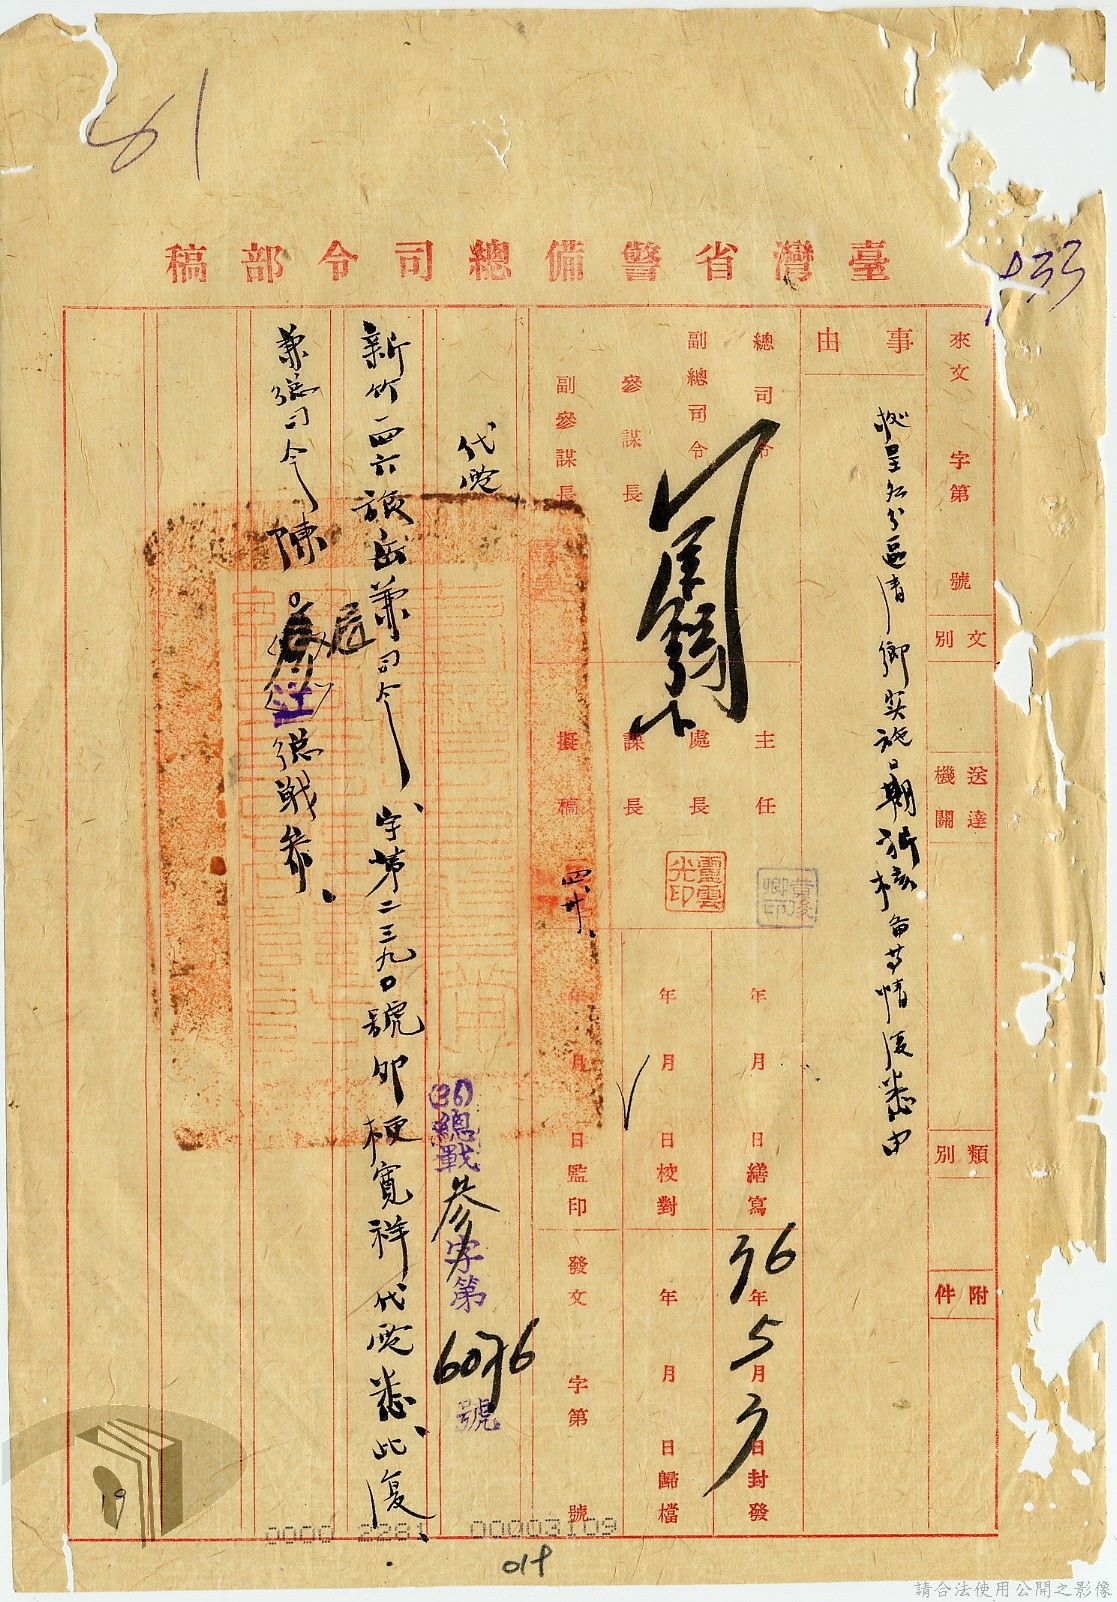 81
133
臺灣省警備總司令部稿
來文 字第 號
文別
送達機關
類別
附件
事由
據呈各分區清鄉實施日期祈核备等情復悉由
總司令
副總司令
參謀長
副參謀長
主任
處長
課長
擬稿
四、廿、
年 月 日繕寫
年 月 日校對
年 月 日監印
36年5月3日封發
年 月 日歸檔
發文 字第 號
代電
(36)總戰參字第6036號
新竹一四六旅岳兼司令 字第二三九〇號卯梗寬祥代電悉、此復、
兼總司令陳 總戰參、
19
0000 2281 00003109
019
請合法使用公開之影像